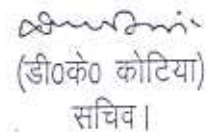 (डी0के0 कोटिया)
सचिव।